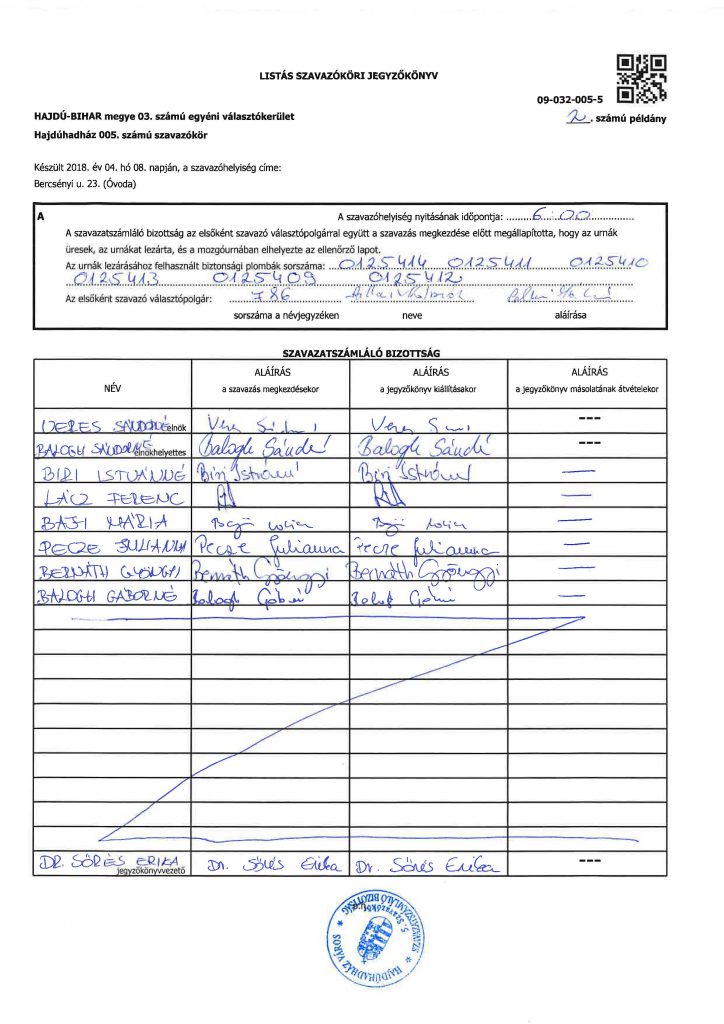 LISTÁS SZAVAZÓKÖRI JEGYZŐKÖNYV
09-032-005-5
2. számú példány
HAJDÚ-BIHAR megye 03. számú egyéni választókerület
Hajdúhadház 005. számú szavazókör
Készült 2018. év 04. hó 08. napján, a szavazóhelyiség címe:
Bercsényi u. 23. (Óvoda)
A A szavazóhelyiség nyitásának időpontja: 6:00
A szavazatszámláló bizottság az elsőként szavazó választópolgárral együtt a szavazás megkezdése előtt megállapította, hogy az urnák
üresek, az urnákat lezárta, és a mozgóurnában elhelyezte az ellenőrző lapot.
Az urnák lezárásához felhasznált biztonsági plombák sorszáma: 0125414 0125411 0125410
0125413 0125409 0125412
Az elsőként szavazó választópolgár: 786
sorszáma a névjegyzéken neve aláírása
SZAVAZATSZÁMLÁLÓ BIZOTTSÁG
NÉV ALÁÍRÁS a szavazás megkezdésekor ALÁÍRÁS a jegyzőkönyv kiállításakor ALÁÍRÁS a jegyzőkönyv másolatának átvételekor
VERES SÁNDORNÉ elnök ---
BALOGH SÁNDORNÉ elnökhelyettes Balogh Sándné Balogh Sándné ---
BIRI ISTVÁNNÉ Biri Istvánné Biri Istvánné —
LÁCZ FERENC —
BAJI MÁRIA —
PECZE JULIANNA Pecze Julianna Pecze Julianna —
BERNÁTH GYÖNGYI Bernáth Gyöngyi Bernáth Gyöngyi —
BALOGH GÁBORNÉ Balogh Gáborné —
DR. SŐRÉS ERIKA jegyzőkönyvvezető Dr. Sőrés Erika Dr. Sőrés Erika ---
SZAVAZATSZÁMLÁLÓ BIZOTTSÁG
5. SZAVAZÓKÖR
HAJDÚHADHÁZ VÁROS